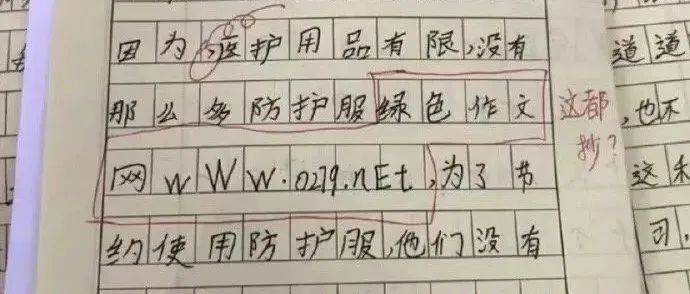 因为医护用品有限,没有
那么多防护服绿色作文
网wWW.0279.nEt,为了节
约使用防护服,他们没有
这都
抄?
道道
,也不
这和
习.